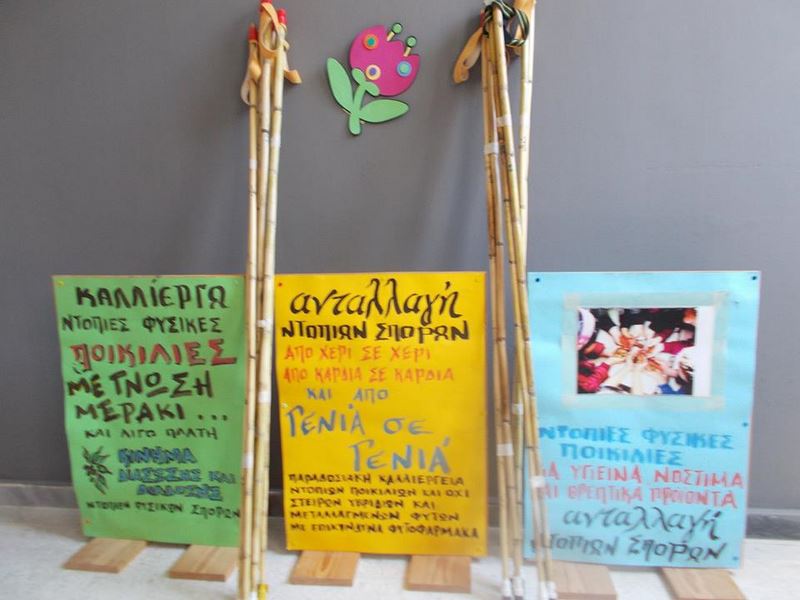 ΚΑΛΛΙΕΡΓΩ
ΝΤΟΠΙΕΣ ΦΥΣΙΚΕΣ
ΠΟΙΚΙΛΙΕΣ
ΜΕ ΓΝΩΣΗ
ΜΕΡΑΚΙ...
ΚΑΙ ΛΙΓΟ ΠΛΑΤΗ
ΚΙΝΗΜΑ
ΔΙΑΣΩΣΗΣ ΚΑΙ
ΔΙΑΔΟΣΗΣ
ΝΤΟΠΙΩΝ ΦΥΣΙΚΩΝ ΣΠΟΡΩΝ
ανταλλαγή
ΝΤΟΠΙΩΝ ΣΠΟΡΩΝ
ΑΠΟ ΧΕΡΙ ΣΕ ΧΕΡΙ
ΑΠΟ ΚΑΡΔΙΑ ΣΕ ΚΑΡΔΙΑ
ΚΑΙ ΑΠΟ
ΓΕΝΙΆ ΣΕ
ΓΕΝΙΆ
ΠΑΡΑΔΟΣΙΑΚΗ ΚΑΛΛΙΕΡΓΕΙΑ
ΝΤΟΠΙΩΝ ΠΟΙΚΙΛΙΩΝ ΚΑΙ ΟΧΙ
ΣΤΕΙΡΩΝ ΥΒΡΙΔΙΩΝ ΚΑΙ
ΜΕΤΑΛΛΑΓΜΕΝΩΝ ΦΥΤΩΝ
ΜΕ ΕΠΙΚΙΝΔΥΝΑ ΦΥΤΟΦΑΡΜΑΚΑ
ΝΤΟΠΙΕΣ ΦΥΣΙΚΕΣ
ΠΟΙΚΙΛΙΕΣ
ΓΙΑ ΥΓΙΕΙΝΑ ΝΟΣΤΙΜΑ
ΚΑΙ ΘΡΕΠΤΙΚΑ ΠΡΟΙΟΝΤΑ
ανταλλαγή
ΝΤΟΠΙΩΝ ΣΠΟΡΩΝ